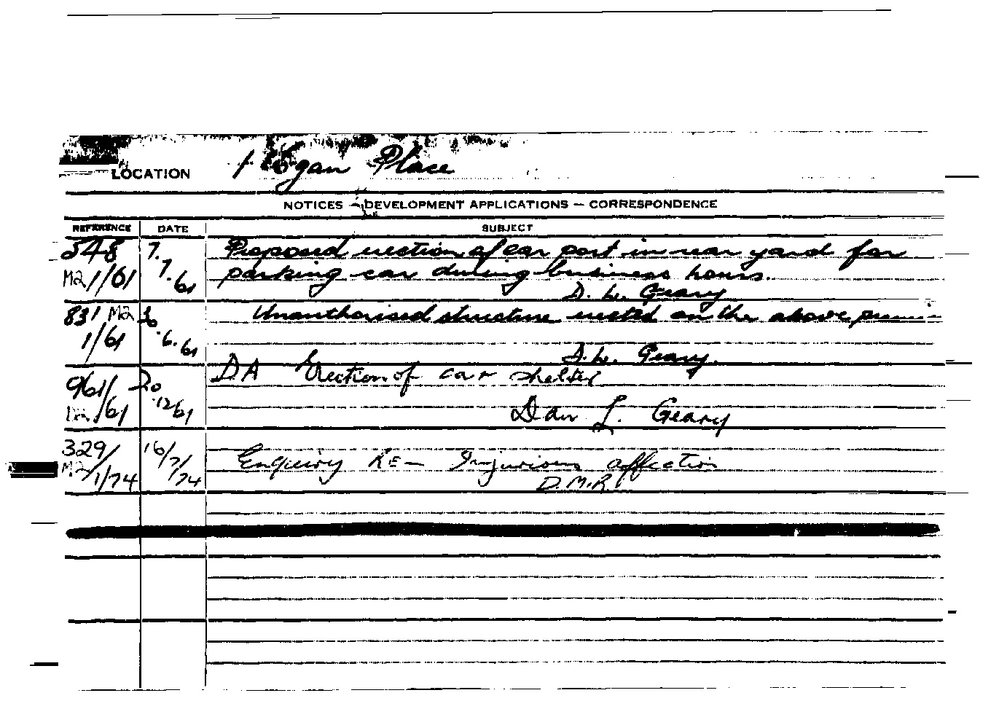 LOCATION 1 Hogan Place
NOTICES - DEVELOPMENT APPLICATIONS - CORRESPONDENCE
REFERENCE DATE SUBJECT
548 7. Proposed erection of car port in rear yard for
M2 1/61 7.61 parking car during business hours.
D. L. Geary
831 M2 30 Unauthorised structure erected on the above
1/61 .6.61
D.L. Geary.
DA Erection of car shelter
961/ 20
M2 1/61 12/61 Dan L. Geary
329/ 16/7/74 Enquiry RE - Injurious affection
M2 1/74 D.M.R.